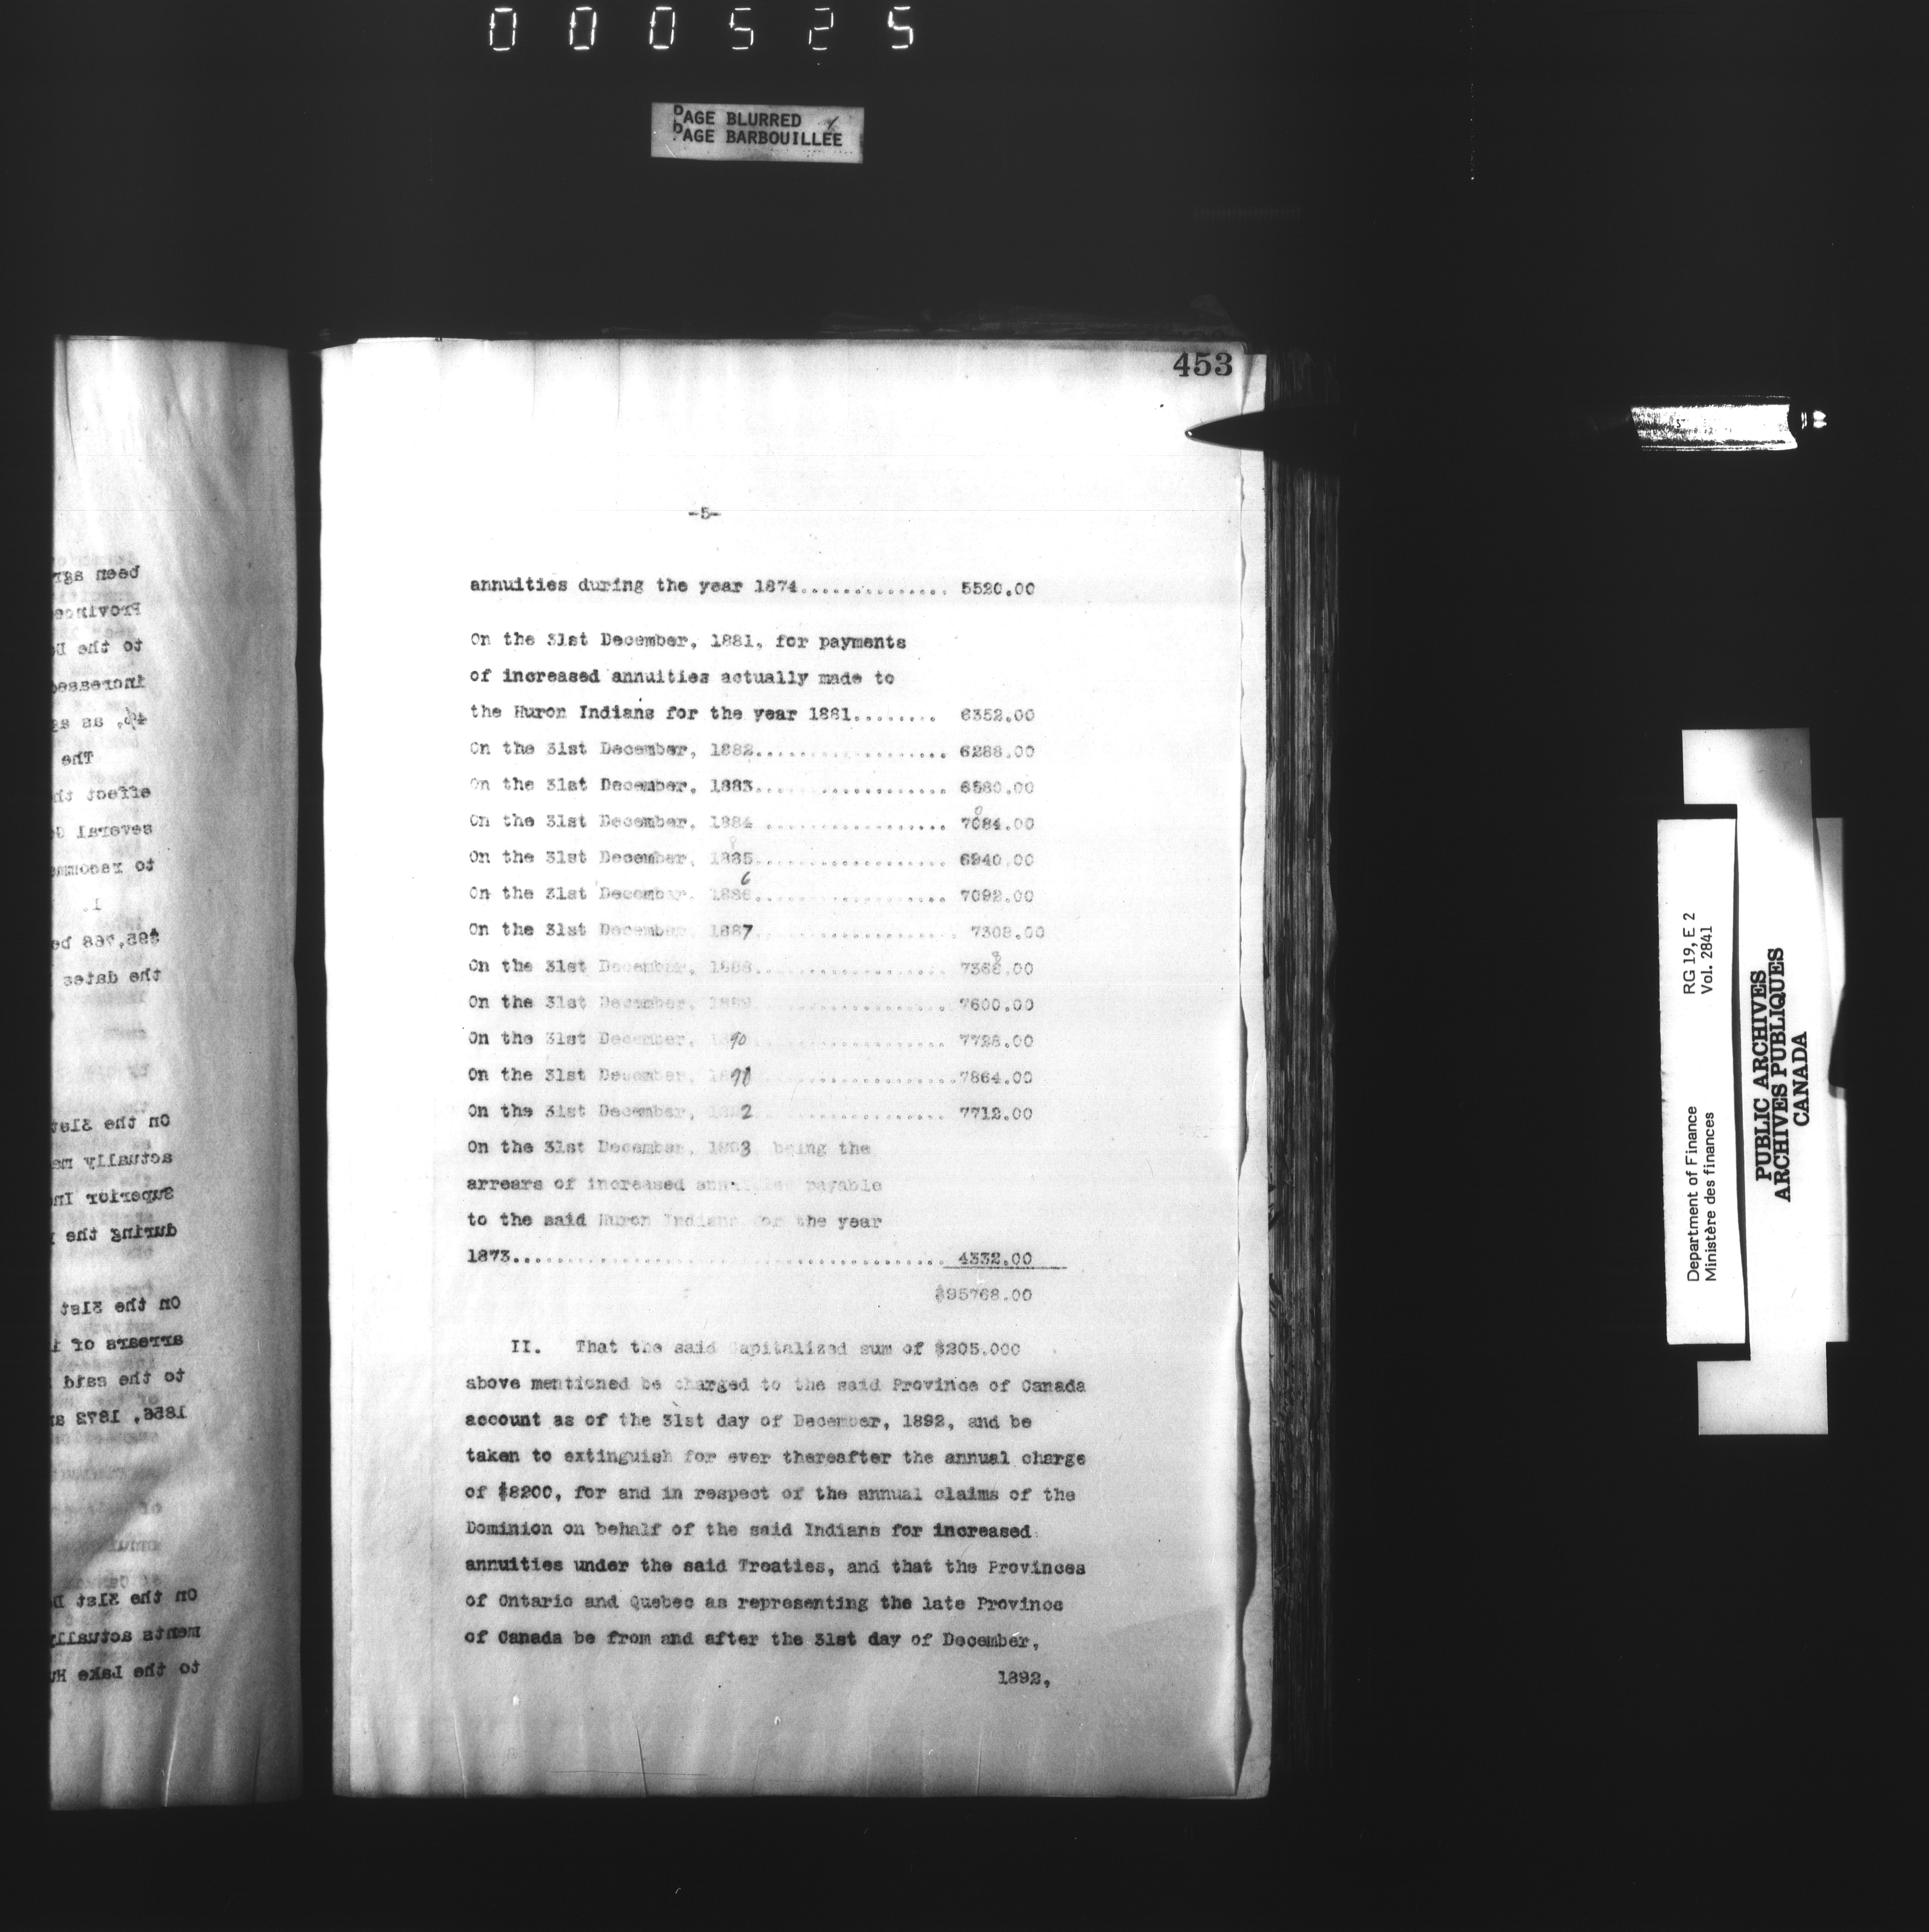 000525
PAGE BLURRED
PAGE BARBOUILLEE
453
-5-
annuities during the year 1874............... 5520.00
On the 31st December, 1881, for payments
of increased annuities actually made to
the Huron Indians for the year 1881........ 6352.00
On the 31st December, 1882................... 6288.00
On the 31st December, 1883................... 6580.00
On the 31st December, 1884 .................. 7084.00
On the 31st December, 1885................... 6940.00
On the 31st December, 1886................... 7092.00
On the 31st December, 1887................... 7308.00
On the 31st December, 1888................... 7368.00
On the 31st December, 1889................... 7600.00
On the 31st December, 1890 .................. 7728.00
On the 31st December, 1891 ..................7864.00
On the 31st December, 1892 .................. 7712.00
On the 31st December, 1893 being the
arrears of increased annuities payable
to the said Huron Indians for the year
1873........................................ 4332.00
$95768.00
II. That the said Capitalized sum of $205.000
above mentioned be charged to the said Province of Canada
account as of the 31st day of December, 1892, and be
taken to extinguish for ever thereafter the annual charge
of $8200, for and in respect of the annual claims of the
Dominion on behalf of the said Indians for increased
annuities under the said Treaties, and that the Provinces
of Ontario and Quebec as representing the late Province
of Canada be from and after the 31st day of December,
1892,
Department of Finance RG 19, E 2
Ministère des finances Vol. 2841
PUBLIC ARCHIVES
ARCHIVES PUBLIQUES
CANADA